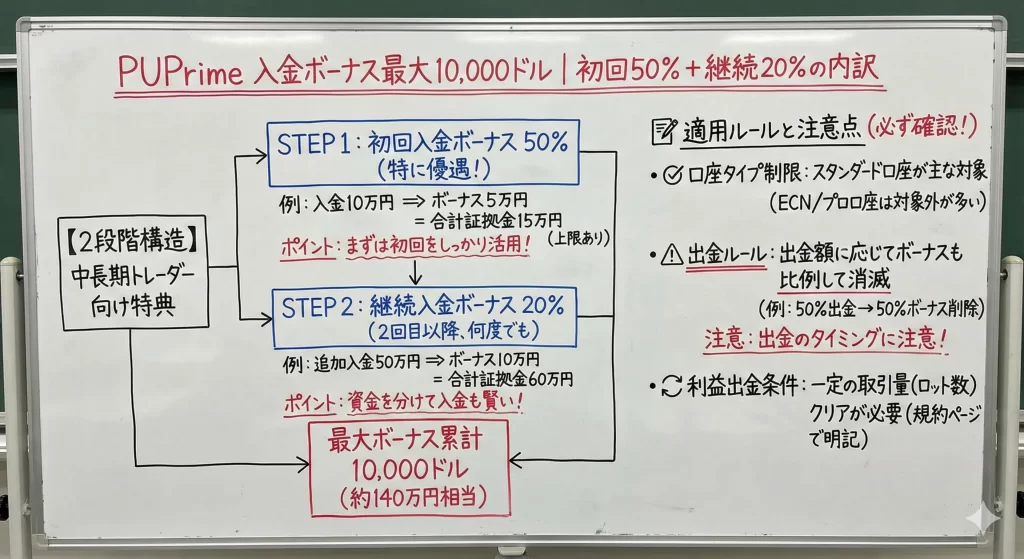 PUPrime 入金ボーナス最大10,000ドル | 初回50%+継続20%の内訳
【2段階構造】
中長期トレーダー
向け特典
STEP 1 : 初回入金ボーナス 50%
(特に優遇!)
例 : 入金10万円 ⇒ ボーナス5万円
= 合計証拠金15万円
(上限あり)
ポイント : まずは初回をしっかり活用!
STEP 2 : 継続入金ボーナス 20%
(2回目以降、何度でも)
例 : 追加入金50万円 ⇒ ボーナス10万円
= 合計証拠金60万円
ポイント : 資金を分けて入金も賢い!
最大ボーナス累計
10,000ドル
(約140万円相当)
適用ルールと注意点 (必ず確認!)
• 口座タイプ制限 : スタンダード口座が主な対象
(ECN/プロ口座は対象外が多い)
• 出金ルール : 出金額に応じてボーナスも
比例して消滅
(例 : 50%出金→50%ボーナス削除)
注意 : 出金のタイミングに注意!
• 利益出金条件 : 一定の取引量(ロット数)
クリアが必要(規約ページ
で明記)